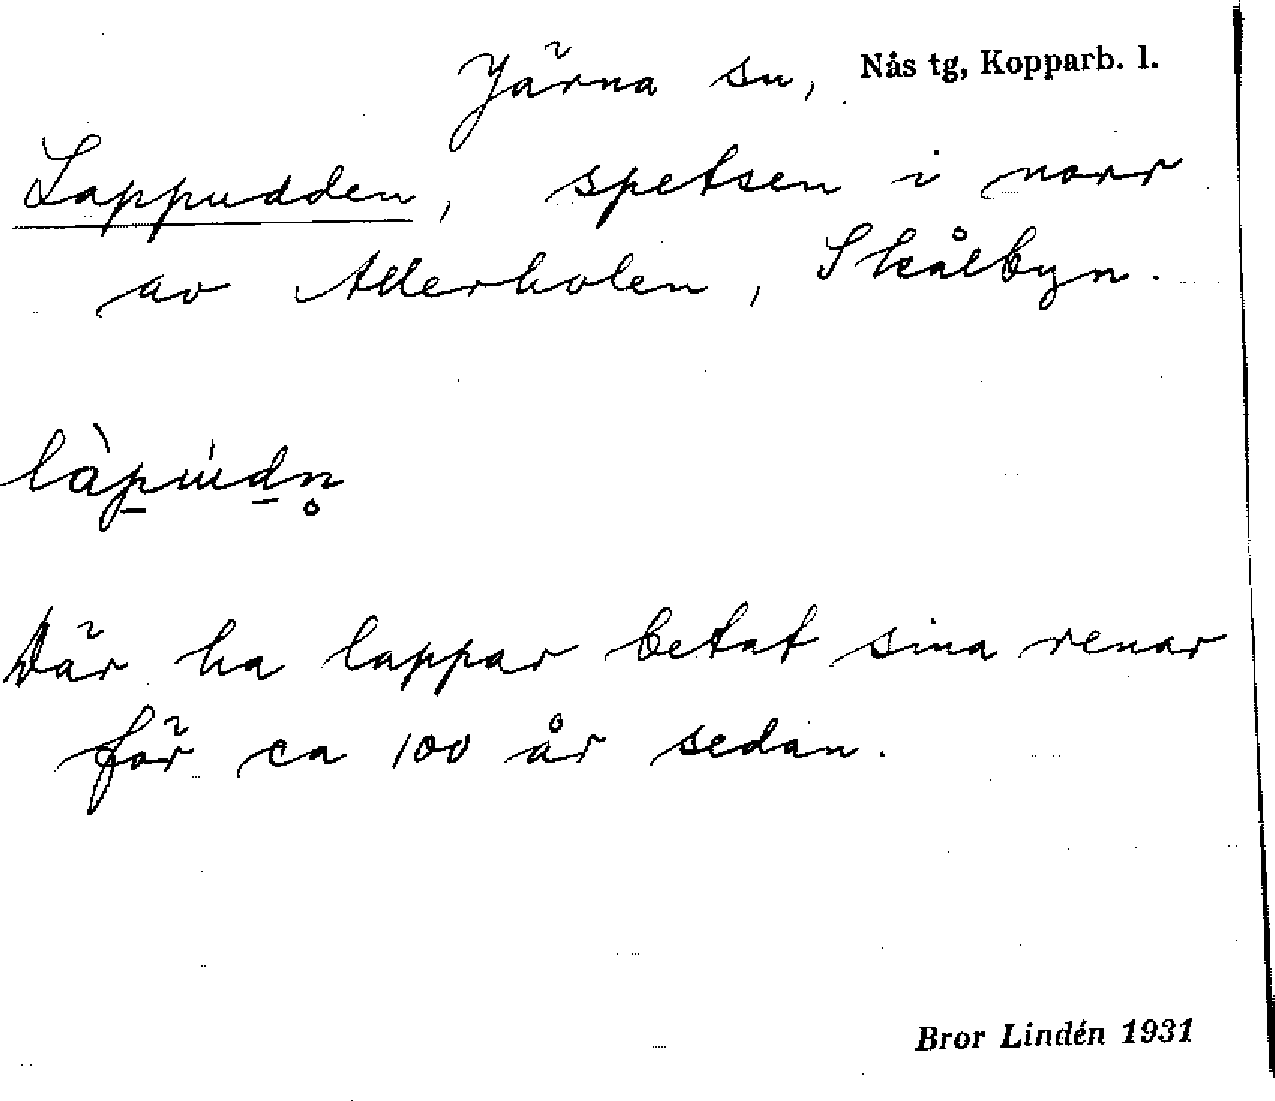 Järna sn, Nås tg, Kopparb. l.
Lappudden, spetsen i norr
av Allerholen, Skålbyn.
Där ha lappar betat sina renar
för ca 100 år sedan.
Bror Lindén 1931